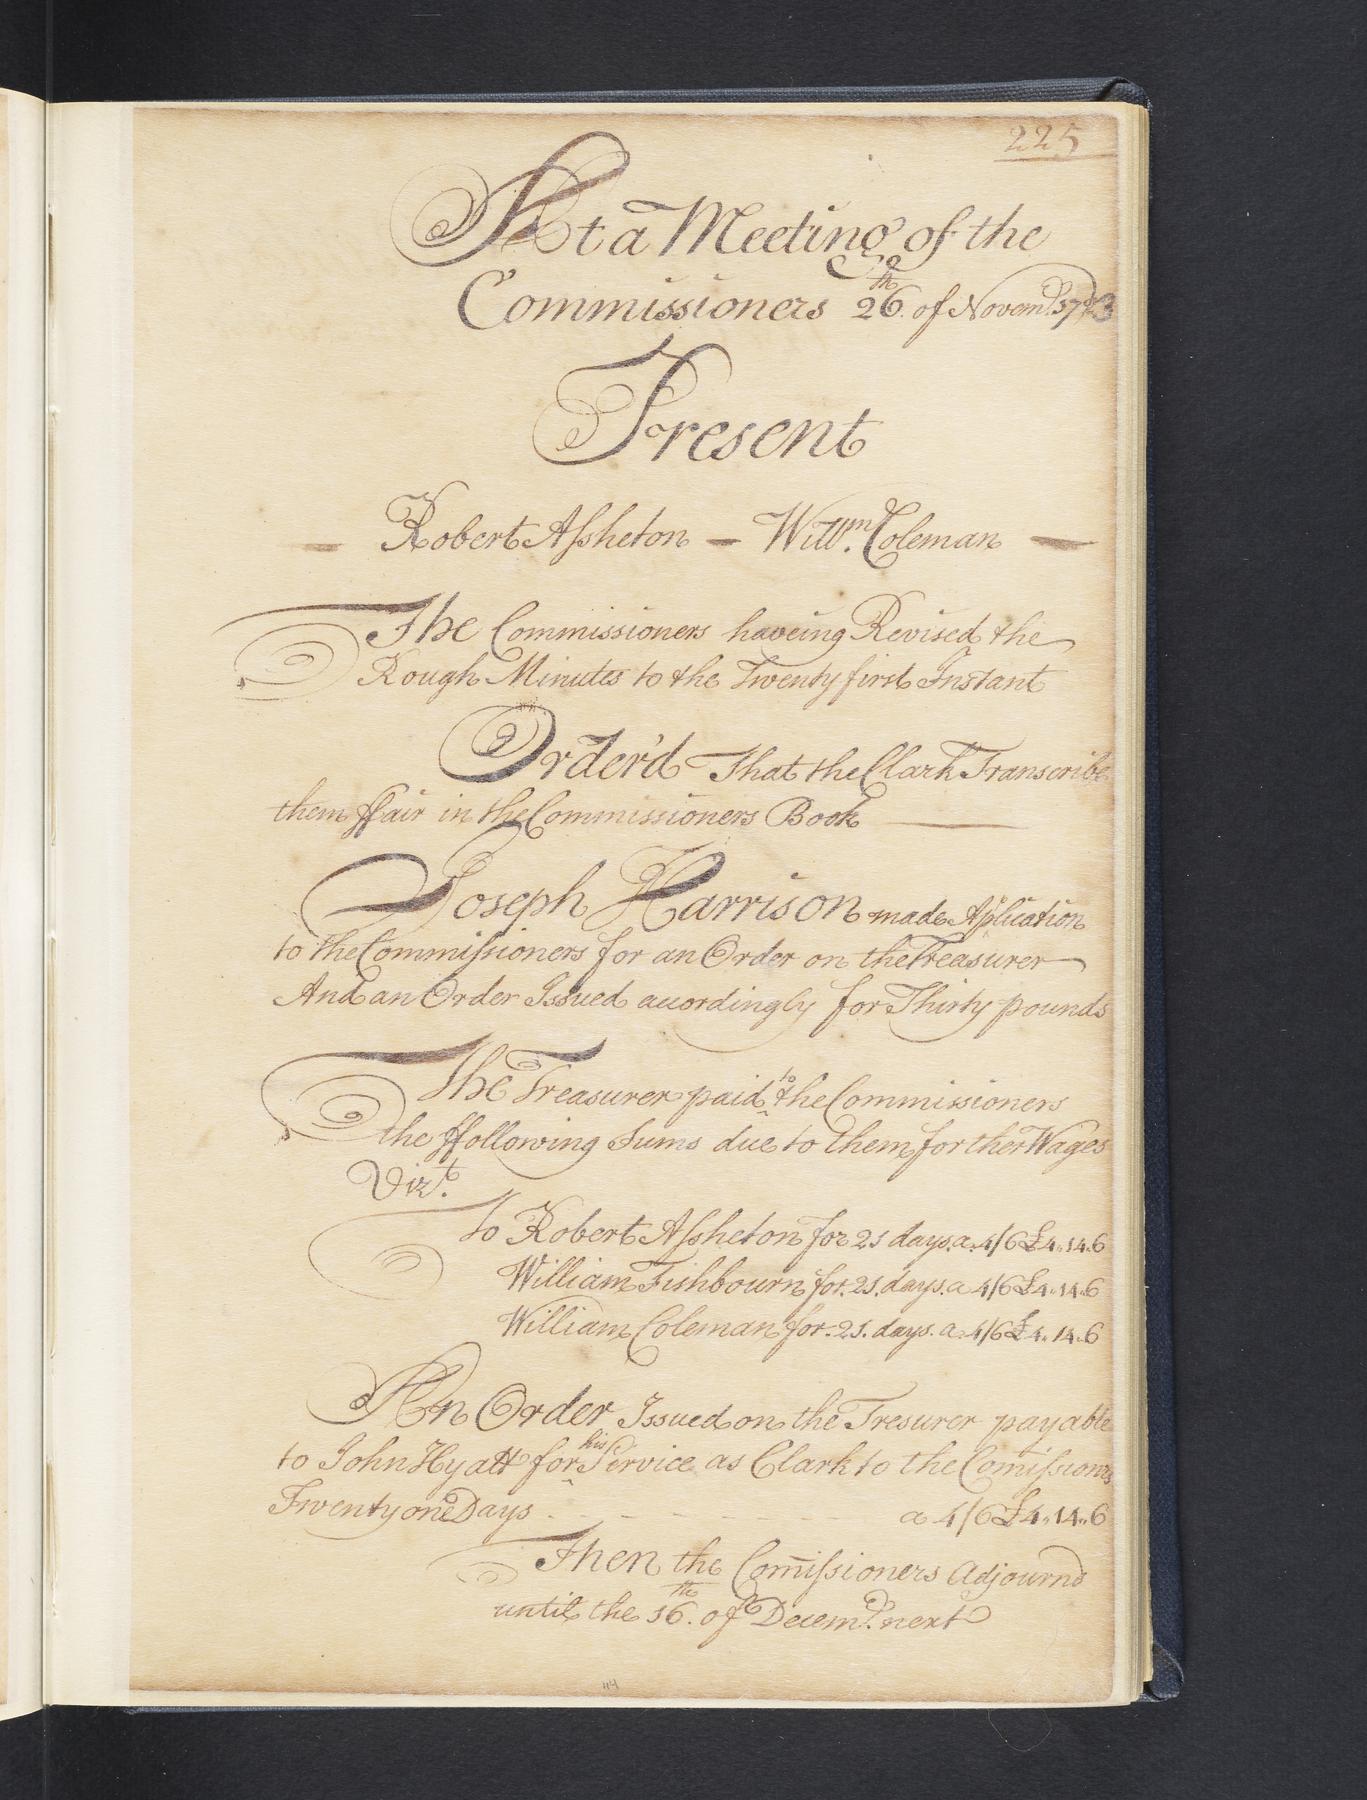 225
At a Meeting of the
Commissioners 26th. of Novembr. 1723
Present
Robert Assheton — Willm. Coleman —
The Commissioners haveing Revised the
Rough Minutes to the Twenty first Instant
Order'd That the Clark Transcribe
them ffair in the Commissioners Book
Joseph Harrison made Aplication
to the Commissioners for an Order on the Treasurer
And an Order Issued acordingly for Thirty pounds
The Treasurer paid to the Commissioners
the ffollowing Sums due to them for ther Wages
Vizt.
To Robert Assheton for 21 days. a. 4/6 £4..14..6
William Fishbourn for. 21. days. a 4/6 £4..14..6
William Coleman for. 21. days. a. 4/6 £4..14..6
An Order Issued on the Tresurer payable
to John Hyatt for his Service as Clark to the Comissionrs
Twenty one Days - - - - - - - - a 4/6 £4..14..6
Then the Comissioners Adjournd
until the 16th. of Decembr. next
114